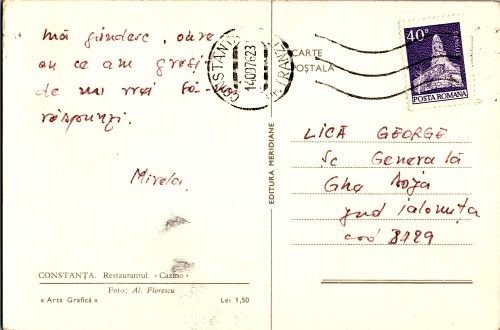 mă gîndesc, oare
cu ce am greșit
de nu vrei să-mi
răspunzi.
Mirela.
CONSTANȚA. Restaurantul «Cazino»
Foto: Al. Florescu
« Arta Grafică »
Lei 1,50
EDITURA MERIDIANE
CARTE
POȘTALĂ
CONSTANȚA
14.00976.23
TRANZIT
40B
POSTA ROMANA
LICĂ GEORGE
Sc Generală
Gha Doja
jud ialomița
cod 8129